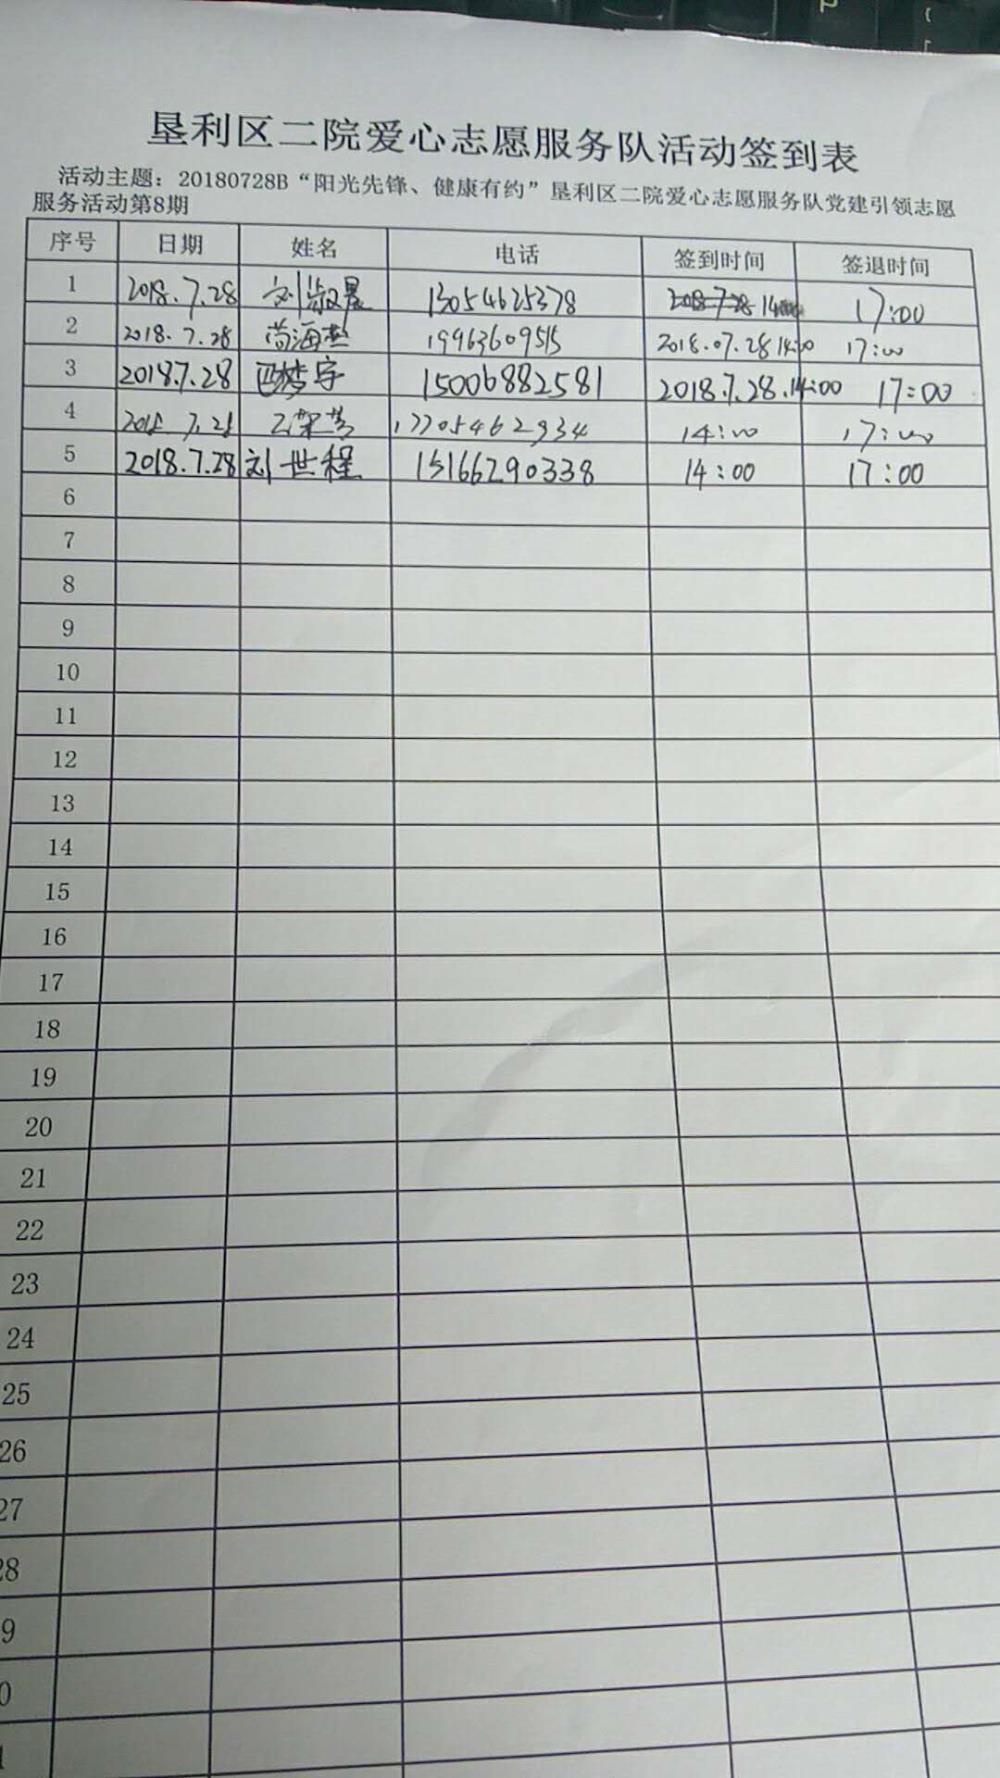 垦利区二院爱心志愿服务队活动签到表
活动主题：20180728B“阳光先锋、健康有约”垦利区二院爱心志愿服务队党建引领志愿
服务活动第8期
序号 日期 姓名 电话 签到时间 签退时间
1 2018.7.28 刘淑晨 13054625378 14:00 17:00
2 2018.7.28 尚海燕 19963609515 2018.07.28 14:00 17:00
3 2018.7.28 巴梦宇 15006882581 2018.7.28.14:00 17:00
4 2018.7.28 17705462934 14:00 17:00
5 2018.7.28 刘世程 15166290338 14:00 17:00
6
7
8
9
10
11
12
13
14
15
16
17
18
19
20
21
22
23
24
25
26
27
28
9
0